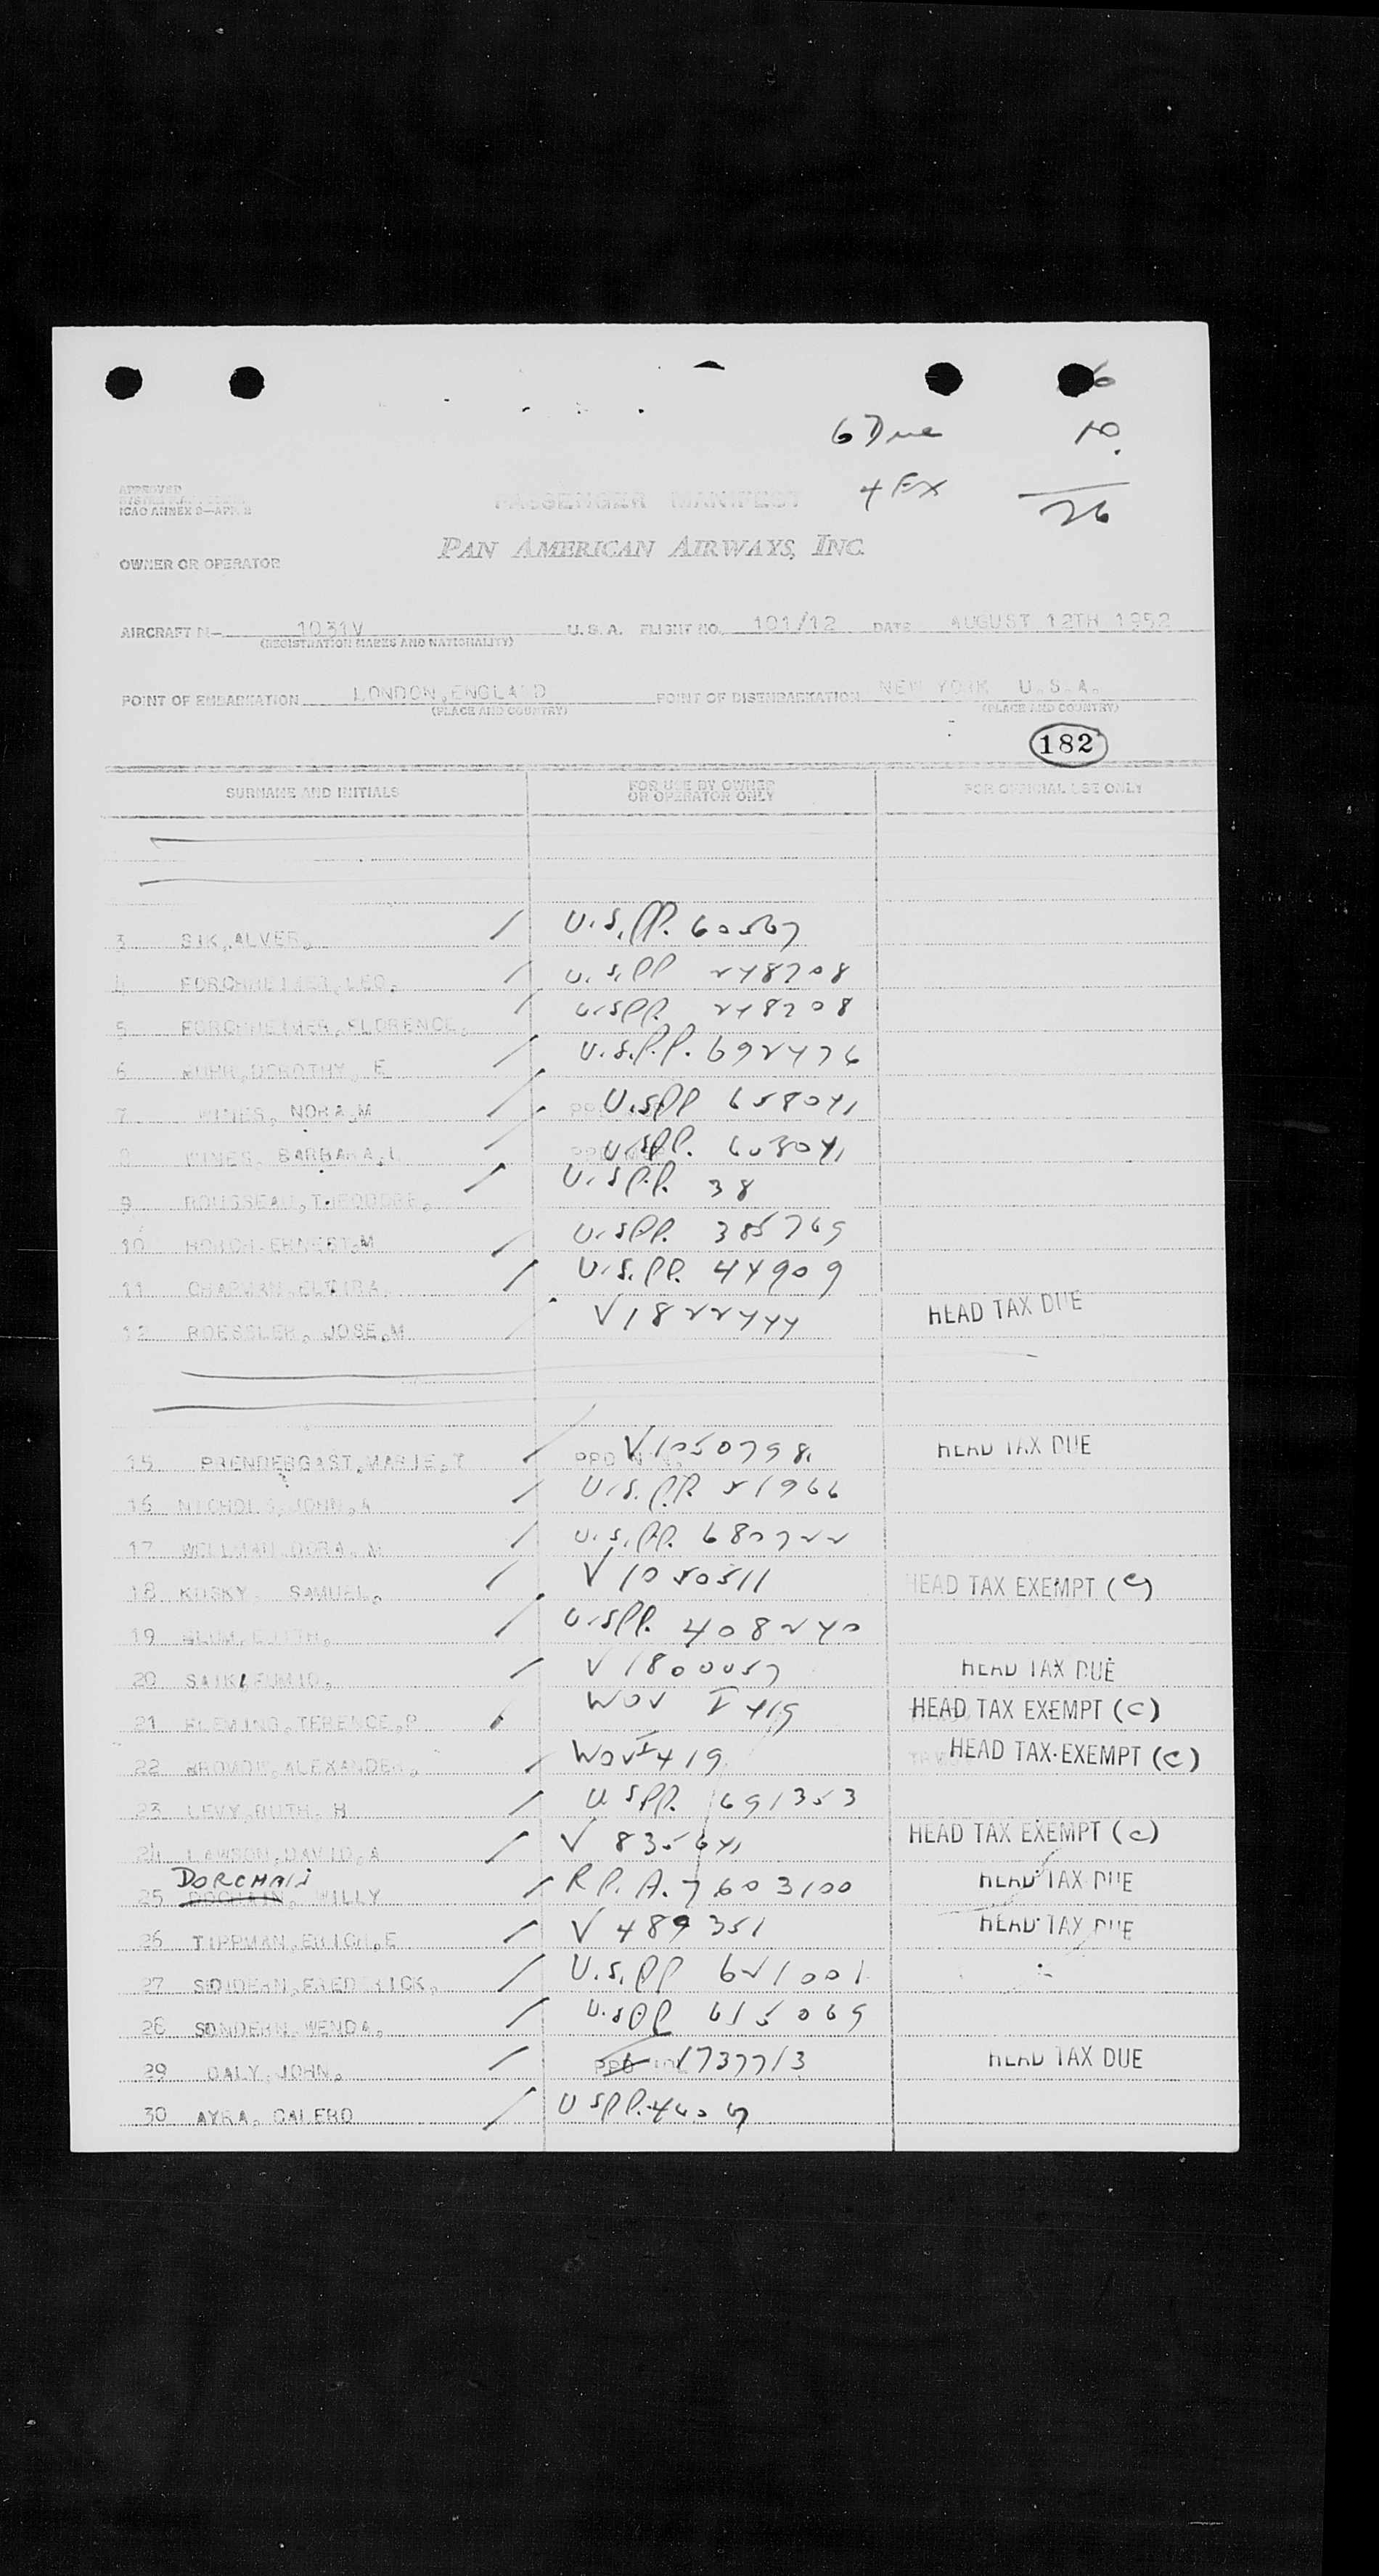 6 Due 10.
4 Ex 26
APPROVED
ICAO ANNEX 9—APP.
PASSENGER MANIFEST
PAN AMERICAN AIRWAYS, INC.
OWNER OR OPERATOR
AIRCRAFT N— 1031V U. S. A. FLIGHT NO. 101/12 DATE AUGUST 12TH 1952
(REGISTRATION MARKS AND NATIONALITY)
POINT OF EMBARKATION LONDON, ENGLAND POINT OF DISEMBARKATION NEW YORK U.S.A.
(PLACE AND COUNTRY) (PLACE AND COUNTRY)
182
SURNAME AND INITIALS FOR USE BY OWNER OR OPERATOR ONLY FOR OFFICIAL USE ONLY
3 SIK, ALVER. U.S.PP. 60567
4 FORCHHEIMER, LEO. U.S.PP 248208
5 FORCHHEIMER, FLORENCE. U.SPP. 248208
6 DOROTHY, E U.S.P.P. 692476
7 WINES, NORA.M U.SPP 658041
8 WINES, BARBARA.L U.SPP.
9 ROUSSEAU, THEODORE. U.S P.P. 38
10 ERNEST.M U.SPP. 385769
11 CHAPMAN, ELVIRA U.S.PP. 44909
12 ROESSLER, JOSE.M V1822444 HEAD TAX DUE
15 PRENDERGAST, MARIE.T V1050798 HEAD TAX DUE
16 NICHOLS, JOHN.A U.S.P.P. 51966
17 WELLMAN, DORA.M U.S.PP. 680722
18 KOSKY, SAMUEL. V 1050511 HEAD TAX EXEMPT (C)
19 BLUM, EDITH. U.SPP. 408240
20 SAIKI, FUMIO. V 1800057 HEAD TAX DUE
21 FLEMING, TERENCE.P WOV I 419 HEAD TAX EXEMPT (C)
22 ALEXANDER. WOV I 419 HEAD TAX EXEMPT (C)
23 LEVY, RUTH. H U SPP. 691353
24 LAWSON, DAVID.A V 835641 HEAD TAX EXEMPT (C)
DORCHAIN
25 DOCHAIN, WILLY R.P.A. 7603100 HEAD TAX DUE
26 TIPPMAN, ERICH.E V 489351 HEAD TAX DUE
27 SONDERN, FREDERICK. U.S.PP 621001
28 SONDERN, WENDA. U.SPP 615069
29 DALY, JOHN. 1737713 HEAD TAX DUE
30 AYRA, CALERO U SPP.